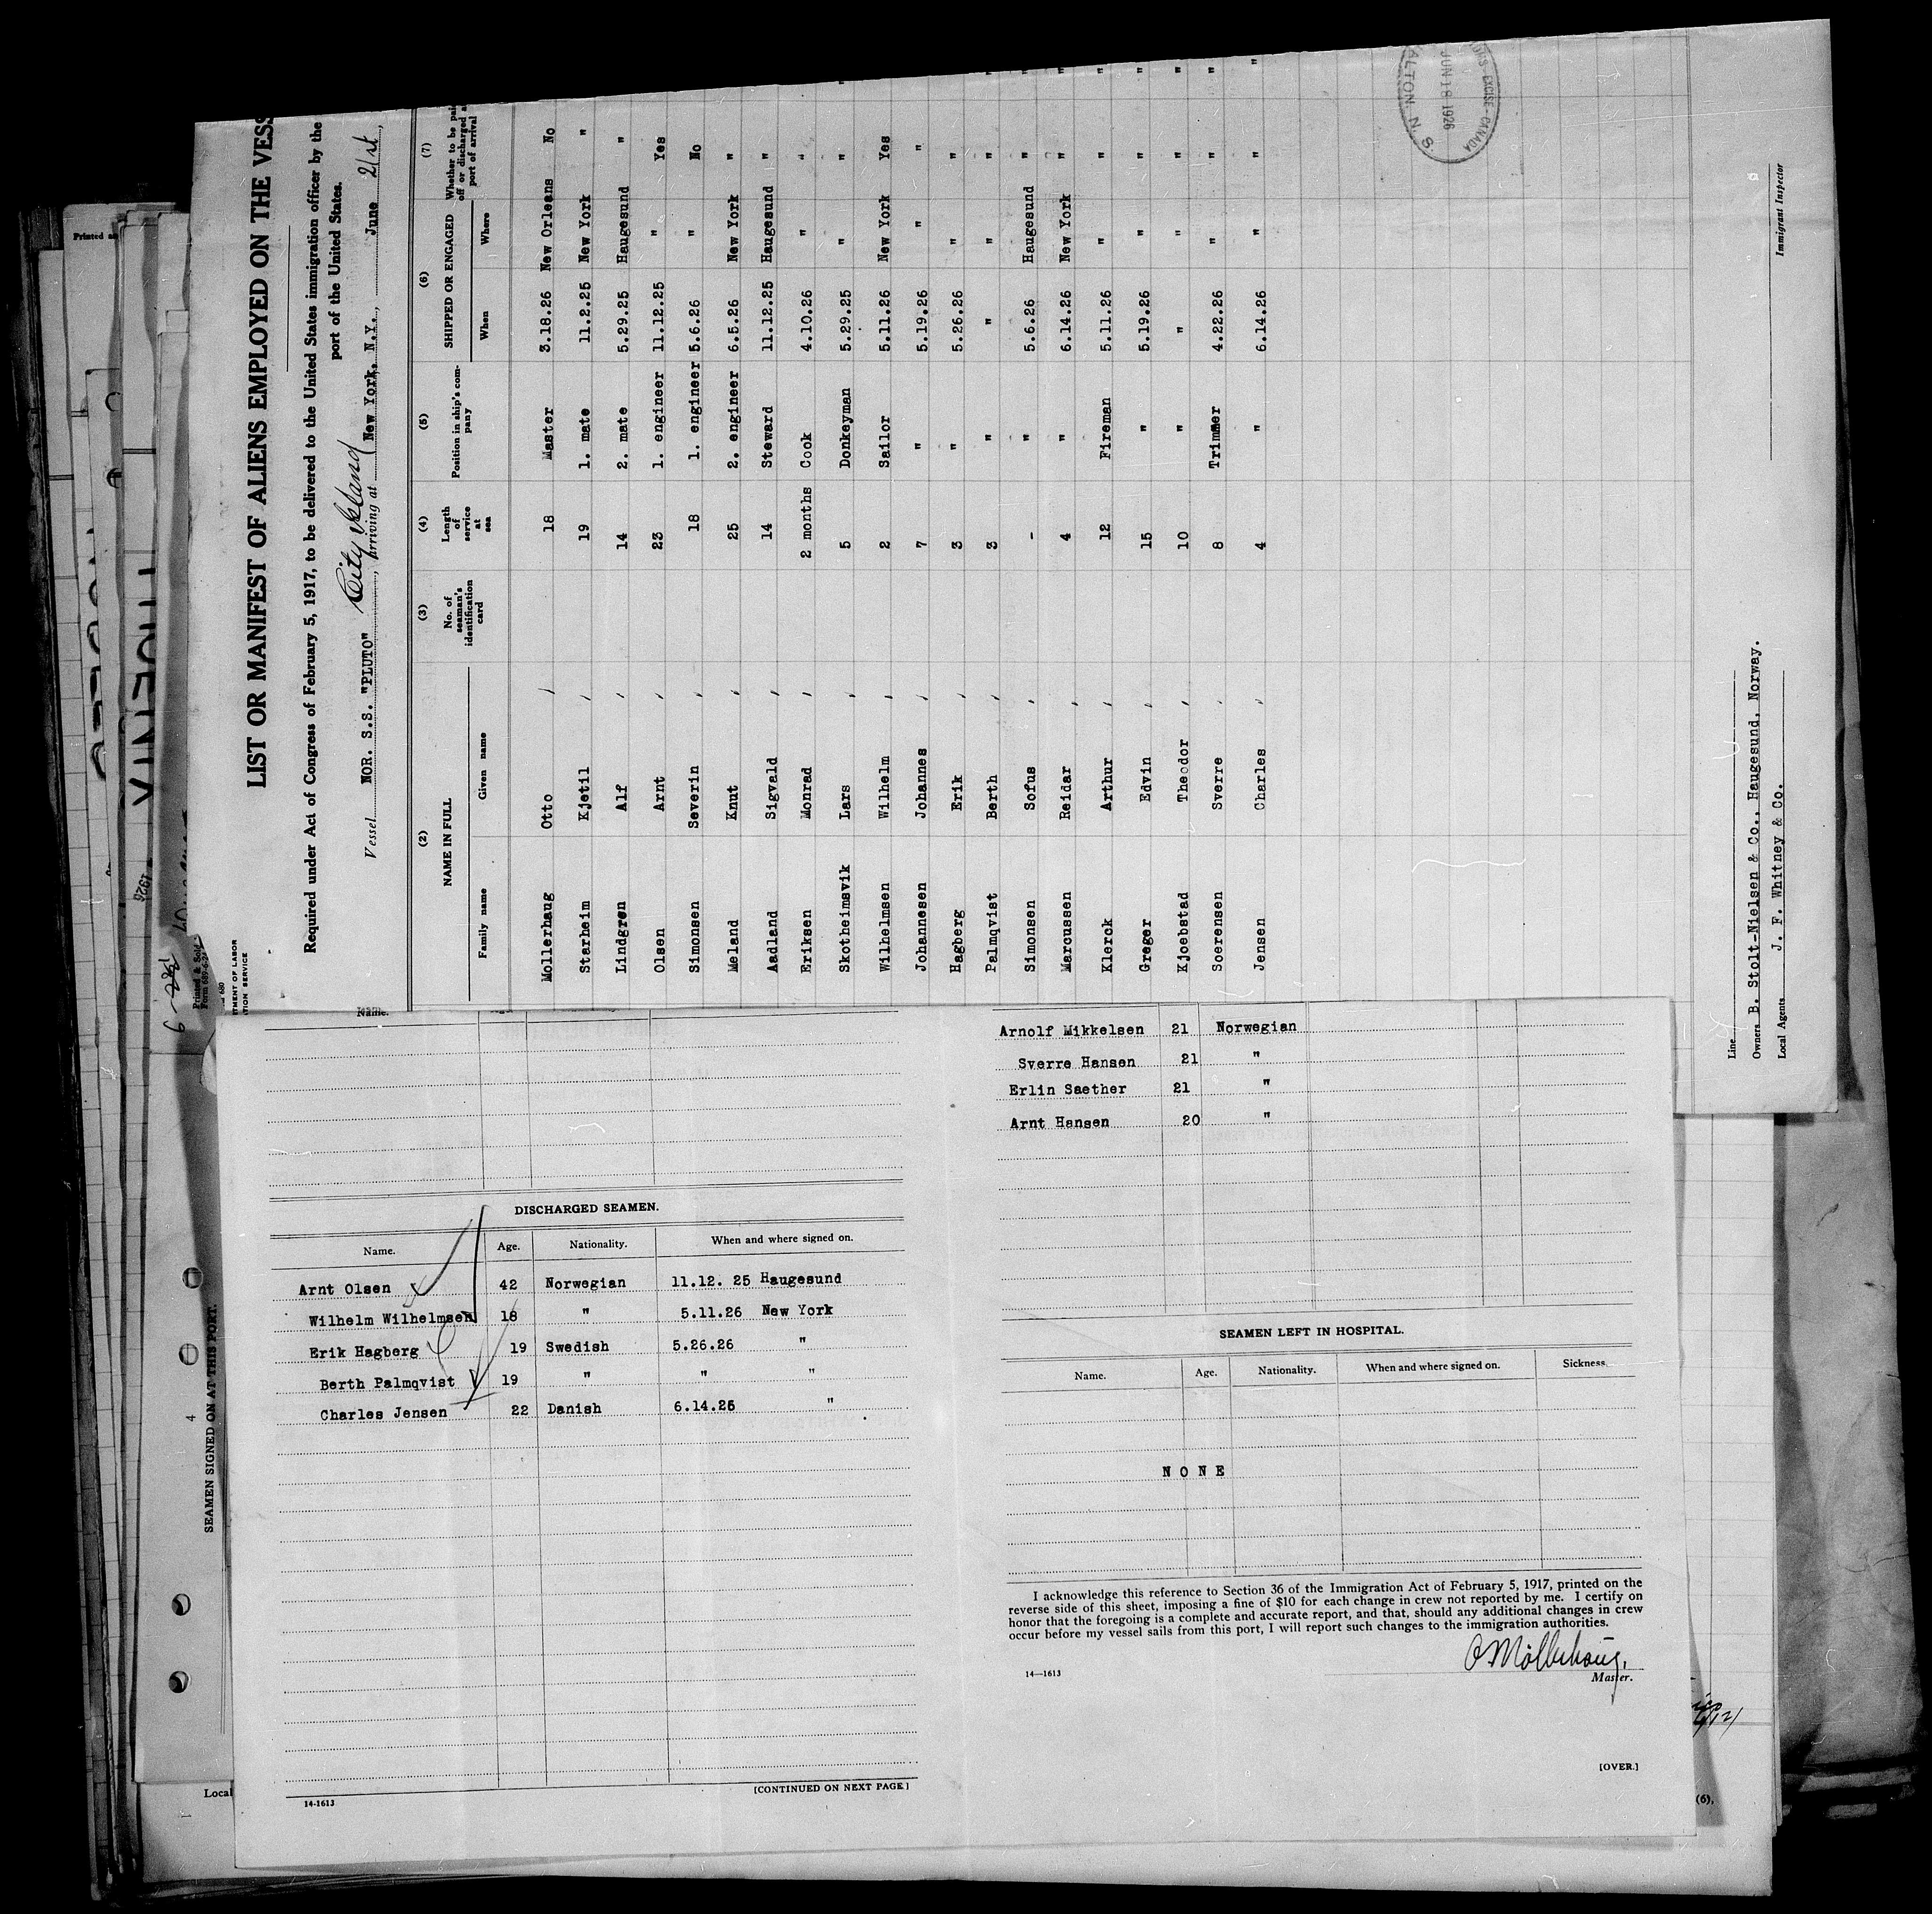 LIST OR MANIFEST OF ALIENS EMPLOYED ON THE VESS
Required under Act of Congress of February 5, 1917, to be delivered to the United States immigration officer by the
port of the United States.
Vessel NOR. S.S. "PLUTO" City Island, arriving at New York, N.Y., June 21st,
(2) (3) (4) (5) (6) (7)
NAME IN FULL No. of seaman's identification card Length of service at sea Position in ship's company SHIPPED OR ENGAGED Whether to be paid off or discharged a port of arrival
Family name Given name When Where
Mollerhaug Otto 18 Master 3.18.26 New Orleans No
Starheim Kjetil 19 1. mate 11.2.25 New York " "
Lindgren Alf 14 2. mate 5.29.25 Haugesund "
Olsen Arnt 23 1. engineer 11.12.25 " Yes
Simonsen Severin 18 1. engineer 5.6.26 " No
Meland Knut 25 2. engineer 6.5.26 New York "
Aadland Sigvald 14 Steward 11.12.25 Haugesund "
Eriksen Monrad 2 months Cook 4.10.26 " "
Skotheimsvik Lars 5 Donkeyman 5.29.25 " " "
Wilhelmsen Wilhelm 2 Sailor 5.11.26 New York Yes
Johannesen Johannes 7 " 5.19.26 " "
Hagberg Erik 3 " 5.26.26 " " "
Palmqvist Berth 3 " " " " "
Simonsen Sofus - " 5.6.26 Haugesund " "
Marcussen Reidar 4 " 6.14.26 New York " "
Klerck Arthur 12 Fireman 5.11.26 " " "
Greger Edvin 15 " 5.19.26 " " "
Kjoebstad Theodor 10 " " " " "
Soerensen Sverre 8 Trimmer 4.22.26 " " "
Jensen Charles 4 " 6.14.26 " " "
EXCISE-CANADA
JUN 18 1926
WALTON, N. S.
Line
Owners B. Stolt-Nielsen & Co., Haugesund, Norway.
Local Agents J. F. Whitney & Co.
Immigrant Inspector
Printed & Sold
TMENT OF LABOR
ATION SERVICE
1926
Printed
Name.
DISCHARGED SEAMEN.
Name. Age. Nationality. When and where signed on.
Arnt Olsen 42 Norwegian 11.12. 25 Haugesund
Wilhelm Wilhelmsen 18 " 5.11.26 New York
Erik Hagberg 19 Swedish 5.26.26 "
Berth Palmqvist 19 " " "
Charles Jensen 22 Danish 6.14.26 "
[CONTINUED ON NEXT PAGE]
14-1613
Arnolf Mikkelsen 21 Norwegian
Sverre Hansen 21 "
Erlin Saether 21 "
Arnt Hansen 20 "
SEAMEN LEFT IN HOSPITAL.
Name. Age. Nationality. When and where signed on. Sickness.
NONE
I acknowledge this reference to Section 36 of the Immigration Act of February 5, 1917, printed on the
reverse side of this sheet, imposing a fine of $10 for each change in crew not reported by me. I certify on
honor that the foregoing is a complete and accurate report, and that, should any additional changes in crew
occur before my vessel sails from this port, I will report such changes to the immigration authorities.
O Mollerhaug,
Master.
14—1613
[OVER.]
SEAMEN SIGNED ON AT THIS PORT.
4
Local
(6),